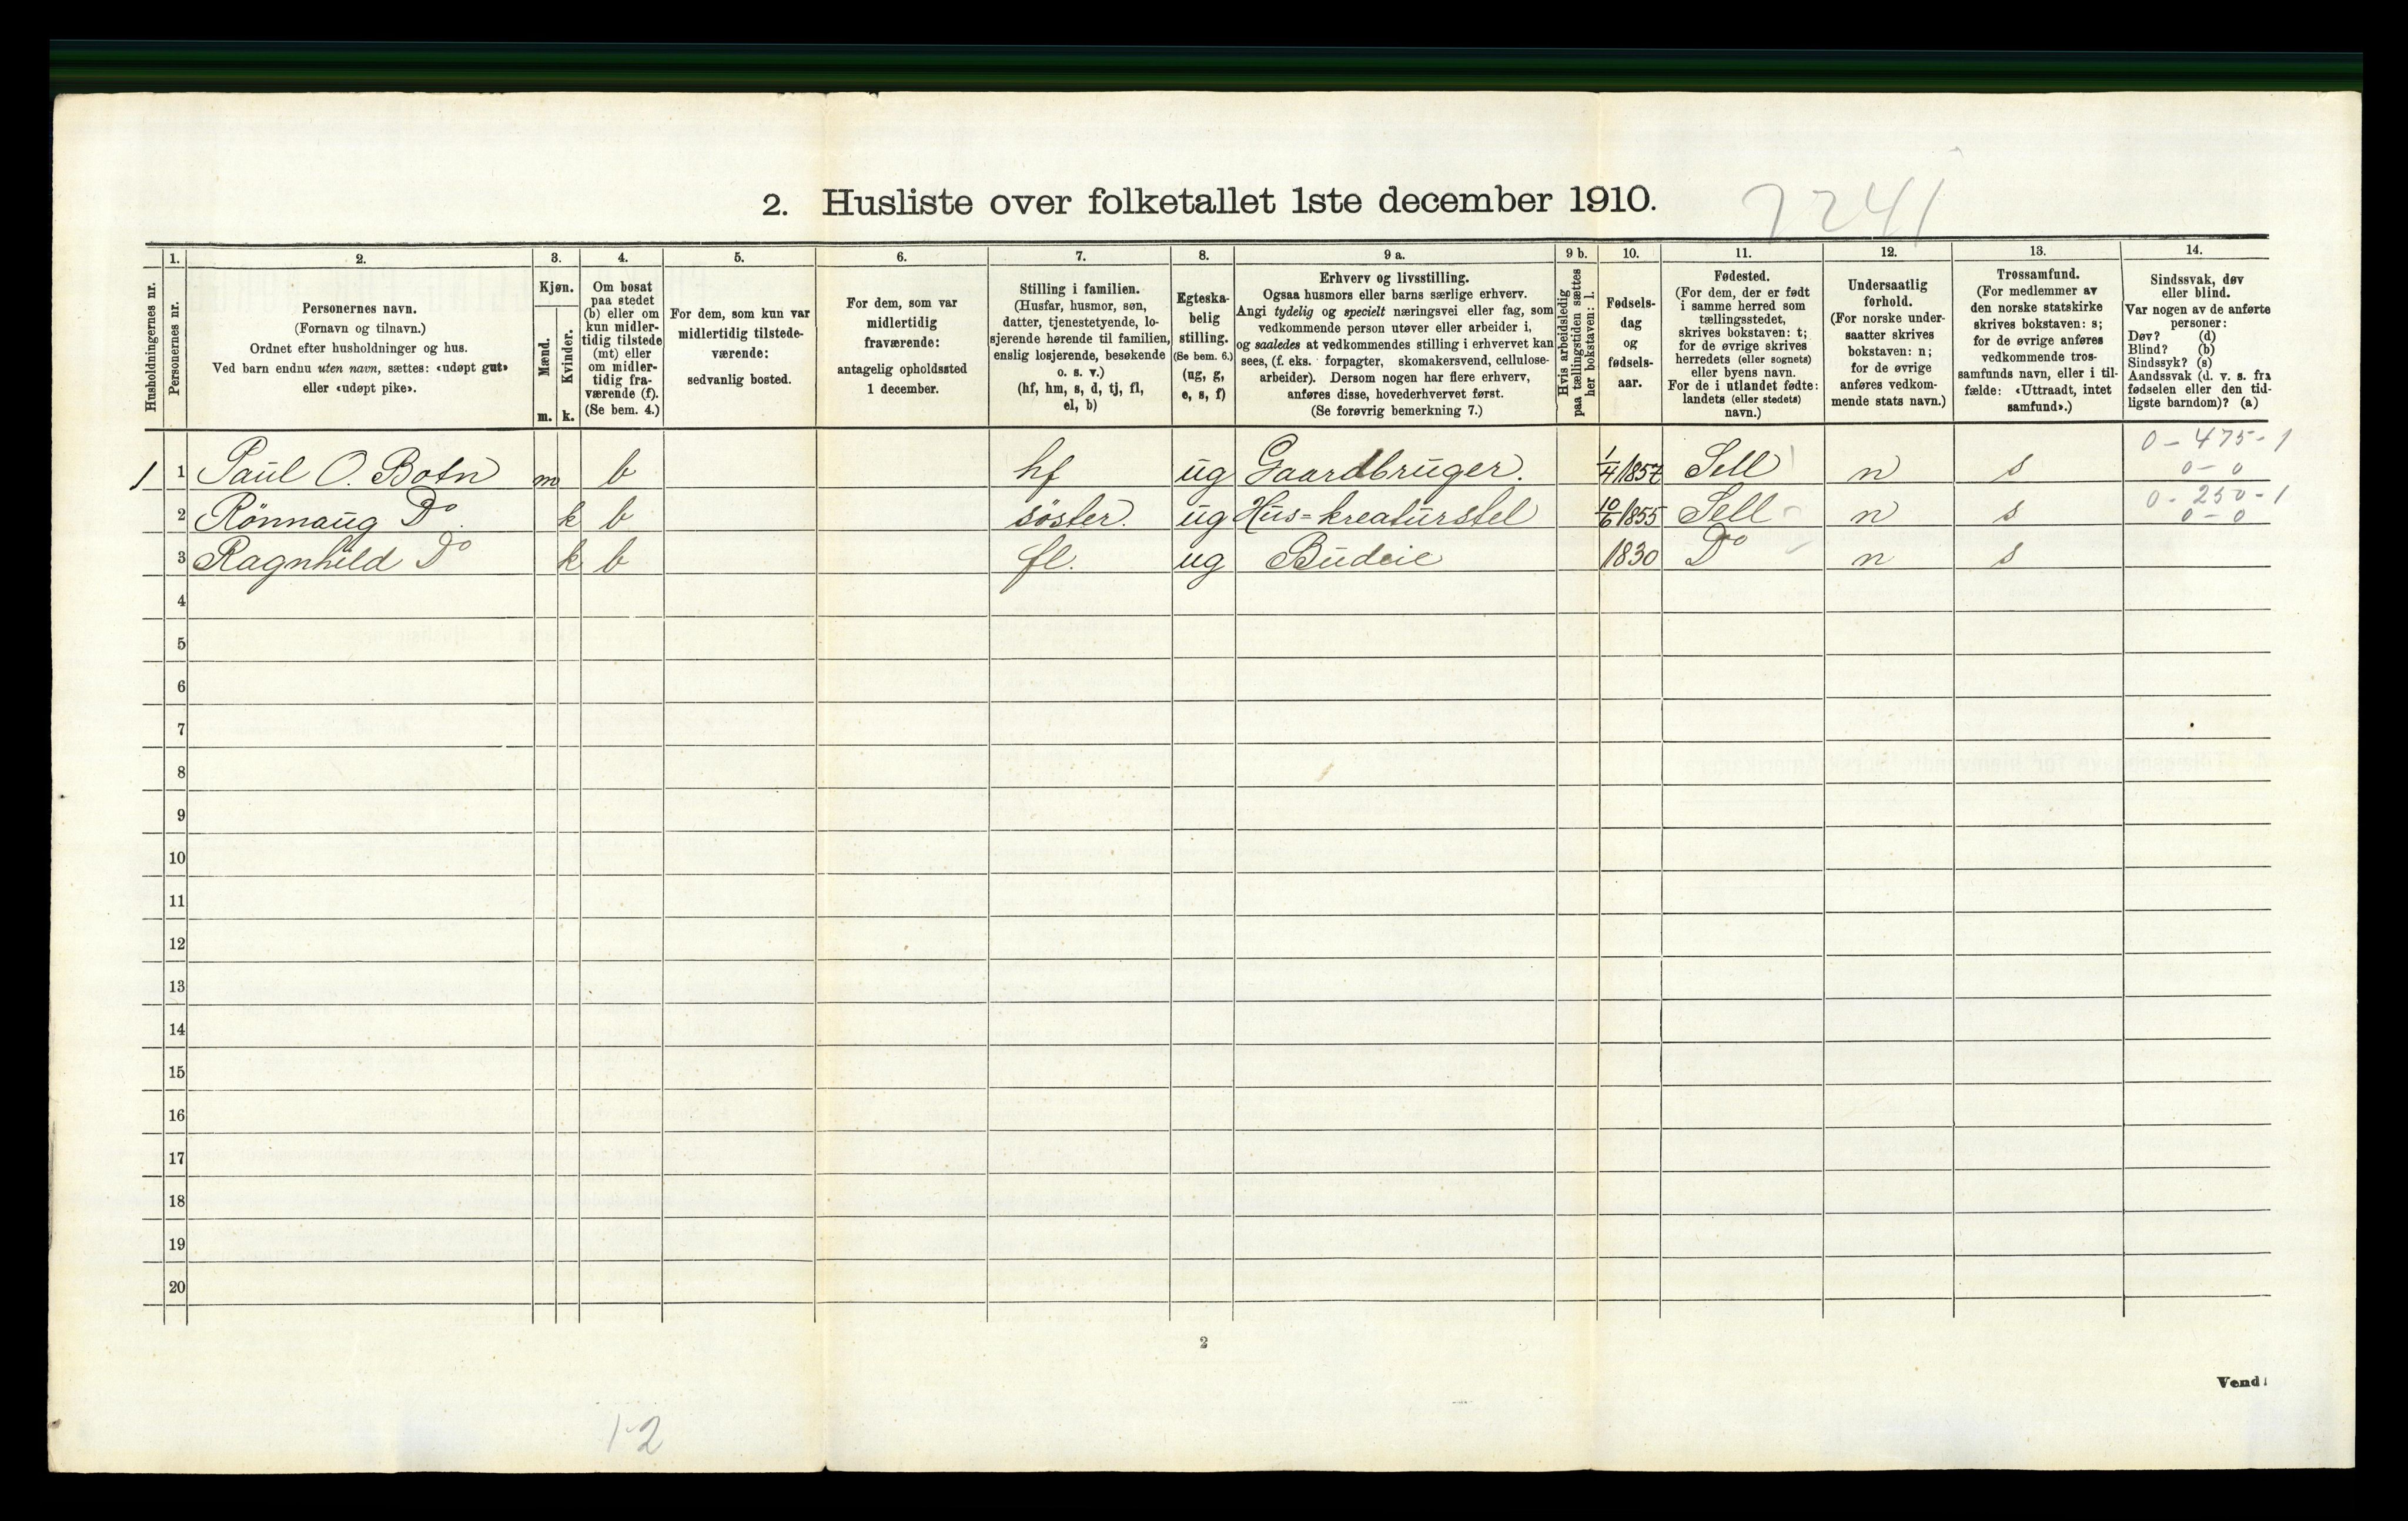 2. Husliste over folketallet 1ste december 1910.
7241
Husholdningernes nr.
1. Personernes nr.
2. Personernes navn.
(Fornavn og tilnavn.)
Ordnet efter husholdninger og hus.
Ved barn endnu uten navn, sættes: «udøpt gut»
eller «udøpt pike».
3. Kjøn.
Mænd. m.
Kvinder. k.
4. Om bosat
paa stedet
(b) eller om
kun midler-
tidig tilstede
(mt) eller
om midler-
tidig fra-
værende (f).
(Se bem. 4.)
5. For dem, som kun var
midlertidig tilstede-
værende:
sedvanlig bosted.
6. For dem, som var
midlertidig
fraværende:
antagelig opholdssted
1 december.
7. Stilling i familien.
(Husfar, husmor, søn,
datter, tjenestetyende, lo-
sjerende hørende til familien,
enslig losjerende, besøkende
o. s. v.)
(hf, hm, s, d, tj, fl,
el, b)
8. Egteska-
belig
stilling.
(Se bem. 6.)
(ug, g,
e, s, f)
9 a. Erhverv og livsstilling.
Ogsaa husmors eller barns særlige erhverv.
Angi tydelig og specielt næringsvei eller fag, som
vedkommende person utøver eller arbeider i,
og saaledes at vedkommendes stilling i erhvervet kan
sees, (f. eks. forpagter, skomakersvend, cellulose-
arbeider). Dersom nogen har flere erhverv,
anføres disse, hovederhvervet først.
(Se forøvrig bemerkning 7.)
9 b. Hvis arbeidsledig
paa tællingstiden sættes
her bokstaven: l.
10. Fødsels-
dag
og
fødsels-
aar.
11. Fødested.
(For dem, der er født
i samme herred som
tællingsstedet,
skrives bokstaven: t;
for de øvrige skrives
herredets (eller sognets)
eller byens navn.
For de i utlandet fødte:
landets (eller stedets)
navn.)
12. Undersaatlig
forhold.
(For norske under-
saatter skrives
bokstaven: n;
for de øvrige
anføres vedkom-
mende stats navn.)
13. Trossamfund.
(For medlemmer av
den norske statskirke
skrives bokstaven: s;
for de øvrige anføres
vedkommende tros-
samfunds navn, eller i til-
fælde: «Uttraadt, intet
samfund».)
14. Sindssvak, døv
eller blind.
Var nogen av de anførte
personer:
Døv? (d)
Blind? (b)
Sindssyk? (s)
Aandssvak (d. v. s. fra
fødselen eller den tid-
ligste barndom)? (a)
0 - 475 - 1
1 1 Paul O. Botn m b hf ug Gaardbruger. 1/4 1857 Sell n s 0 - 0
0 - 250 - 1
2 Rönnaug Do. k b söster. ug Hus= kreaturstel 10/6 1855 Sell n s 0 - 0
3 Ragnhild Do k b fl. ug Budeie 1830 Do n s
4
5
6
7
8
9
10
11
12
13
14
15
16
17
18
19
20
2
Vend!
1-2